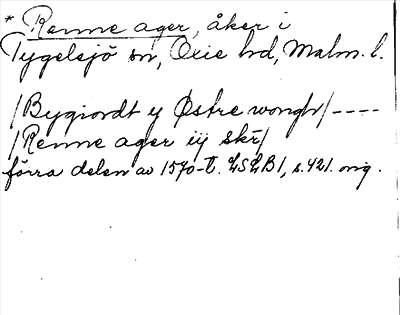 * Renne ager, åker i
Tygelsjö sn, Oxie hd, Malm. l.
/Bygiordt y Østre wongh/----
/Renne ager iij skr/
förra delen av 1570-t. LSLB1, s. 421. orig.